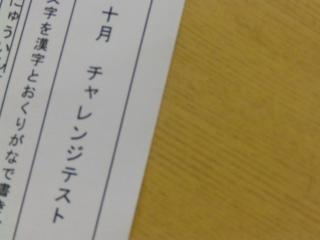 十月　チャレンジテスト
文字を漢字とおくりがなで書き
にゅういん